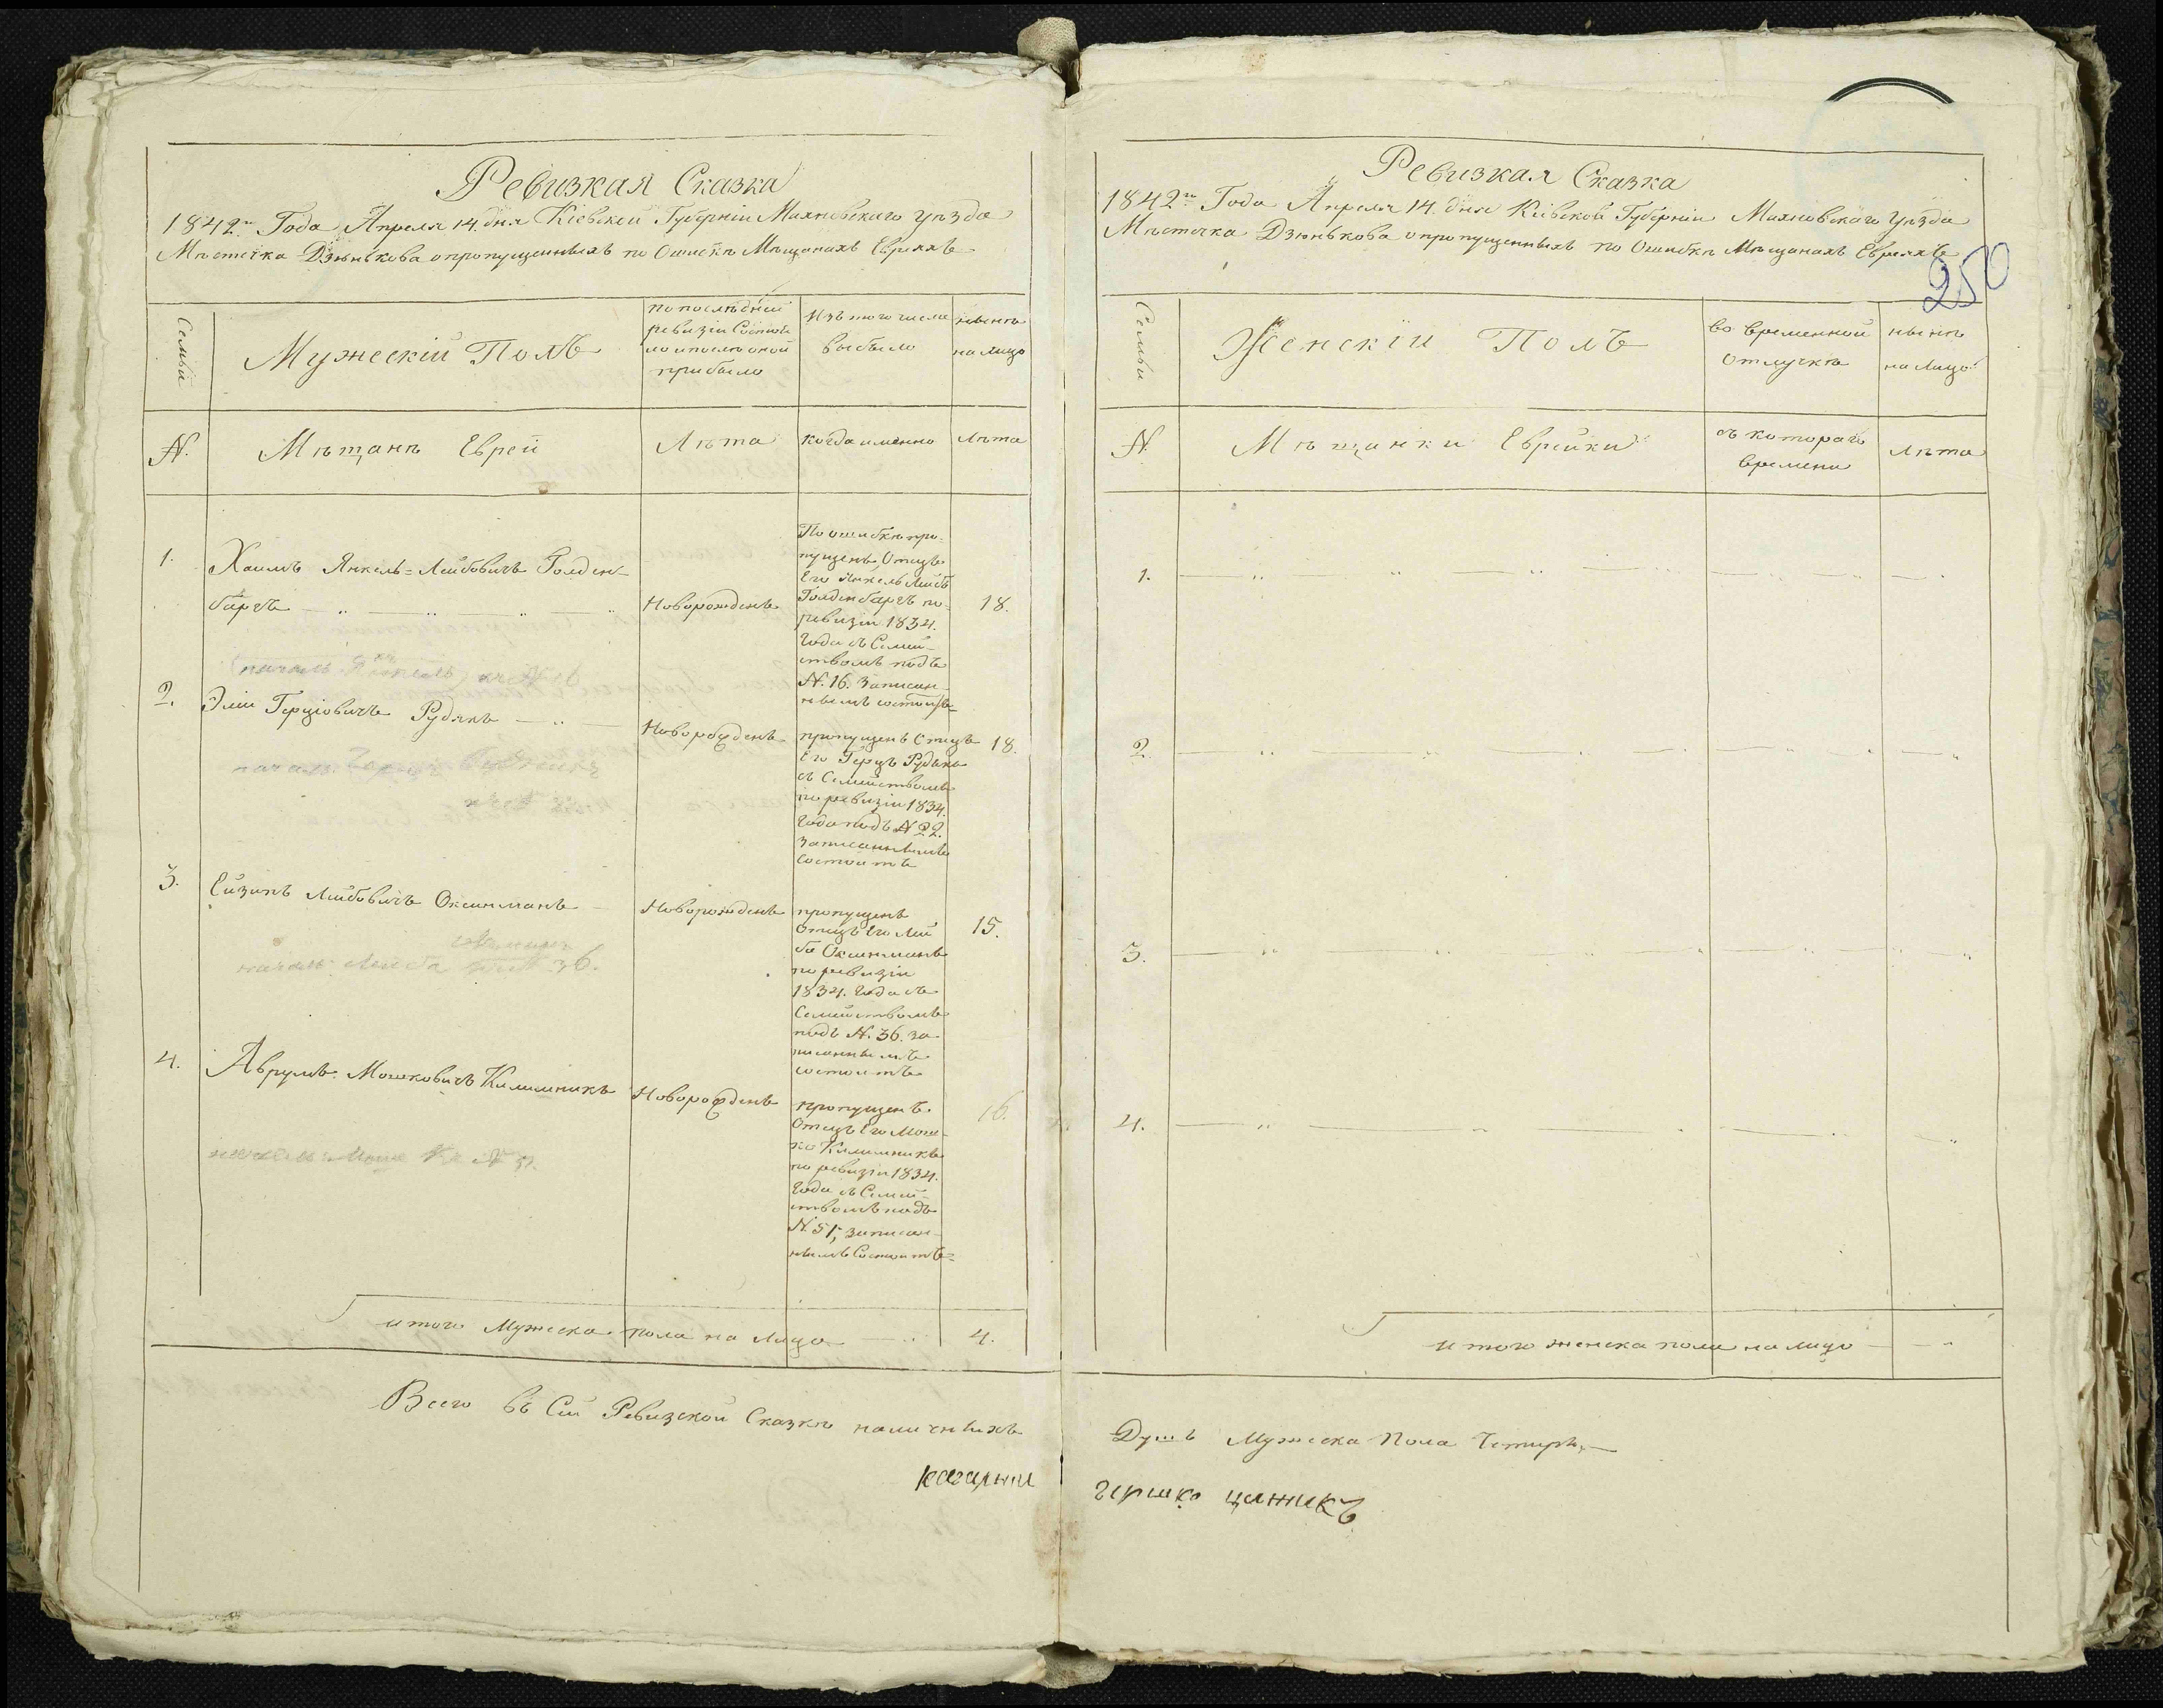 Ревизкая Сказка
1842го Года Апреля 14. дня Кіевской Губерніи Махновскаго Уѣзда
Мѣстечка Дзюнькова о пропущенныхъ по Ошибкѣ Мѣщанахъ Евреяхъ
Семьи
Мужескій Полъ
по послѣдней
ревизіи Состоя
ло и послѣ оной
прибыло
Изъ того числа
выбыло
нынѣ
на лицо
№.
Мѣщанѣ Евреи
Лѣта
когда именно
Лѣта
1.
Хаимъ Янкель=Лейбовичъ Голден-
баргъ
Новорожденъ
По ошибкѣ про-
пущенъ, Отецъ
Его Янкель Лейбъ
Голденбаргъ по
ревизіи 1834.
Года съ Семей-
ствомъ подъ
№. 16. Записан-
нымъ состоитъ
18.
2.
Элии Герціовичъ Рудякъ
Новорожденъ
пропущенъ Отецъ
Его Герцъ Рудякъ
съ Семействомъ
по ревизіи 1834.
Года подъ № 22.
Записаннымъ
состоитъ
18.
3.
Ейзикъ Лейбовичъ Оксинманъ
Новорожденъ
пропущенъ
Отецъ Его Лей
ба Оксинманъ
по ревизіи
1834. Года съ
Семействомъ
подъ №. 36. за
писаннымъ
состоитъ
15.
Лейба 36.
4.
Аврумъ Мошковичъ Килимникъ
Новорожденъ
пропущенъ
Отецъ Его Мош-
ко Килимникъ
по ревизіи 1834.
Года съ Семей-
ствомъ подъ
№ 51, записан-
нымъ Состоитъ
16.
итого Мужеска пола на Лицо
4.
Всего въ Сей Ревизской Сказкѣ наличныхъ
кагалний
Ревизкая Сказка
1842го Года Апреля 14. дня Кіевской Губерніи Махновскаго Уѣзда
Мѣстечка Дзюнькова о пропущенныхъ по Ошибкѣ Мѣщанахъ Евреяхъ
250
Семьи
Женскій Полъ
во временной
отлучкѣ
нынѣ
на лицо
№
Мѣщанки Еврейки
съ котораго
времени
Лѣта
1.
2.
3.
4.
итого женска пола на лицо
Душъ Мужеска Пола Четыре
гершко цижикъ